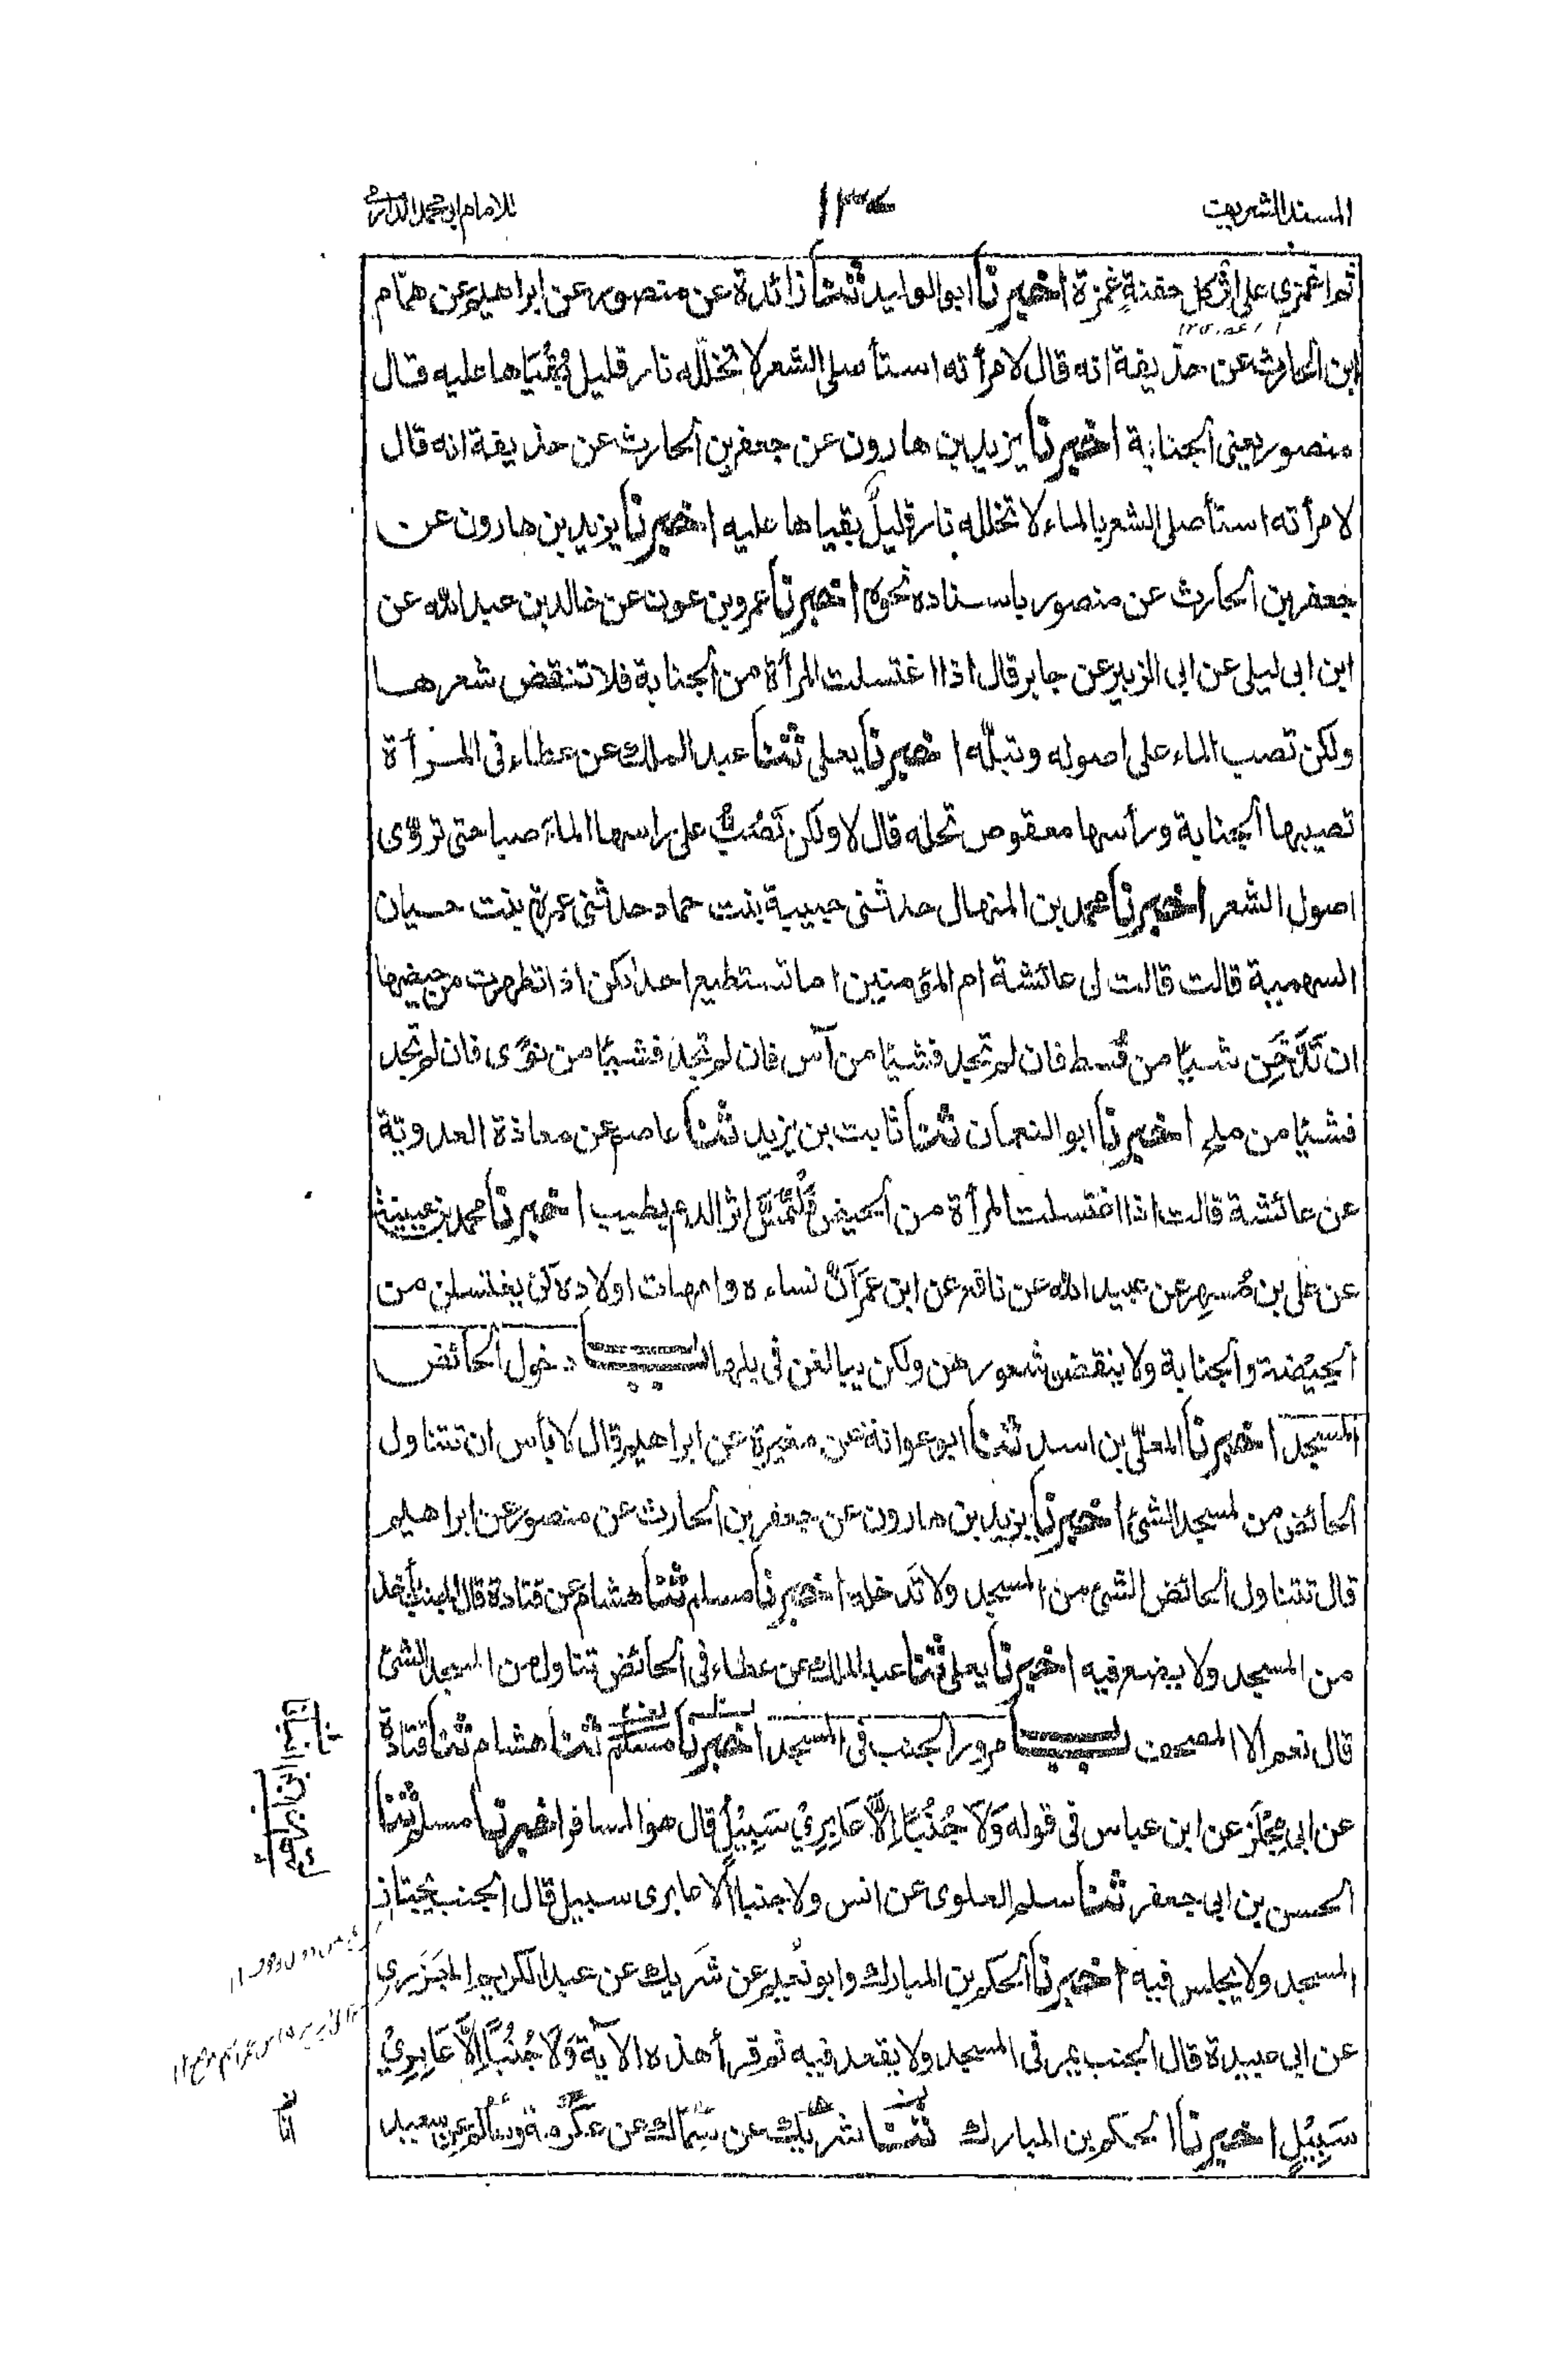 المسند الشريف
للامام ابي محمد الدارمي
ثم اغمزي على اثر كل حفنةٍ غمزة اخبرنا ابو الوليد ثنا زائدة عن منصور عن ابراهيم عن همّام
ابن الحارث عن حذيفة انه قال لامرأته استأصلى الشعر لا تخلّله نار قليل بُقْيَاها عليه قال
منصور يعنى الجنابة اخبرنا يزيد بن هارون عن جعفر بن الحارث عن حذيفة انه قال
لامرأته استأصلى الشعر بالماء لا تخلله نار قليلٌ بقياها عليه اخبرنا يزيد بن هارون عن
جعفر بن الحارث عن منصور باسناده نحوه اخبرنا عمرو بن عون عن خالد بن عبد الله عن
ابن ابى ليلى عن ابى الزبير عن جابر قال اذا اغتسلت المرأة من الجنابة فلا تنقض شعرها
ولكن تصب الماء على اصوله وتبلّه اخبرنا يعلى ثنا عبد الملك عن عطاء فى المرأة
تصيبها الجنابة ورأسها معقوص تحله قال لا ولكن تَصُبُّ على راسها الماء صبا حتى تروّى
اصول الشعر اخبرنا محمد بن المنهال حدثنى حبيبة بنت حماد حدثنى عمرة بنت حسيان
السهمية قالت قالت لى عائشة ام المؤمنين اما تستطيع احدٰكن اذا تطهرت من حيضها
ان تَدَّخِن شيئا من قُسط فان لم تجد فشيئا من آس فان لم تجد فشيئا من نوًى فان لم تجد
فشيئا من ملح اخبرنا ابو النعمان ثنا ثابت بن يزيد ثنا عاصم عن معاذة العدويّة
عن عائشة قالت اذا اغتسلت المرأة من الحيض فَلْتُمِسَّ اثر الدم بطيب اخبرنا محمد بن عيينة
عن على بن مُسهِر عن عبيد الله عن نافع عن ابن عمر اَنَّ نساءه وامهات اولاده كنّ يغتسلن من
الحيضة والجنابة ولا ينقضن شعورهن ولكن يبالغن فى بلها باب دخول الحائض
المسجد اخبرنا المعلّى بن اسد ثنا ابو عوانة عن مغيرة عن ابراهيم قال لا بأس ان تتناول
الحائض من المسجد الشئ اخبرنا يزيد بن هارون عن جعفر بن الحارث عن منصور عن ابراهيم
قال تتناول الحائض الشئ من المسجد ولا تدخله اخبرنا مسلم ثنا هشام عن قتادة قال الجنب يأخذ
من المسجد ولا يضع فيه اخبرنا يعلى ثنا عبد الملك عن عطاء فى الحائض تناول من المسجد الشئ
قال نعم الا المصحف باب مرور الجنب فى المسجد اخبرنا مسلم ثنا هشام ثنا قتادة
عن ابى مِجْلَز عن ابن عباس فى قوله وَلَا جُنُبًا اِلَّا عَابِرِيْ سَبِيْلٍ قال هو المسافر اخبرنا مسلم ثنا
الحسن بن ابى جعفر ثنا سلم العلوى عن انس ولا جنبا الا عابرى سبيل قال الجنب يجتاز
المسجد ولا يجلس فيه اخبرنا الحكم بن المبارك وابو نُعيم عن شَريك عن عبد الكريم الجَزَرى
عن ابى عبيدة قال الجنب يمر فى المسجد ولا يقعد فيه ثم قرأ هذه الاٰية وَلَا جُنُبًا اِلَّا عَابِرِيْ
سَبِيْلٍ اخبرنا الحكم بن المبارك ثنا شريك عن سماك عن عكرمة وسالم عن سعيد